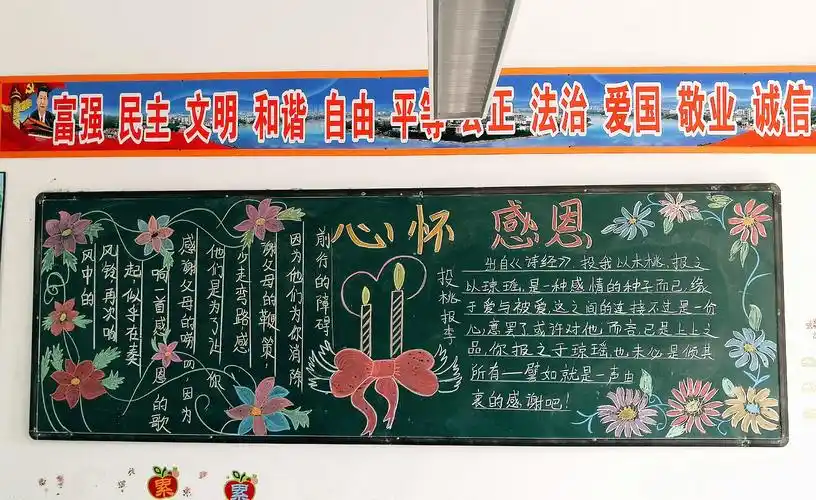 富强 民主 文明 和谐 自由 平等 公正 法治 爱国 敬业 诚信
心怀 感恩
风中的
风铃,再次响
起,似乎在奏
响一首感恩的歌
感谢父母的唠叨,因为
他们是为了让你
少走弯路感
谢父母的鞭策,
因为他们为你消除
前行的障碍
投桃报李
出自《诗经》投我以木桃,报之
以琼瑶,是一种感情的种子而已,缘
于爱与被爱,这之间的连接不过是一份
心意罢了或许对他,而言,已是上上之
品,你报之于琼瑶,也未必是倾其
所有——譬如就是一声由
衷的感谢吧!
累
累